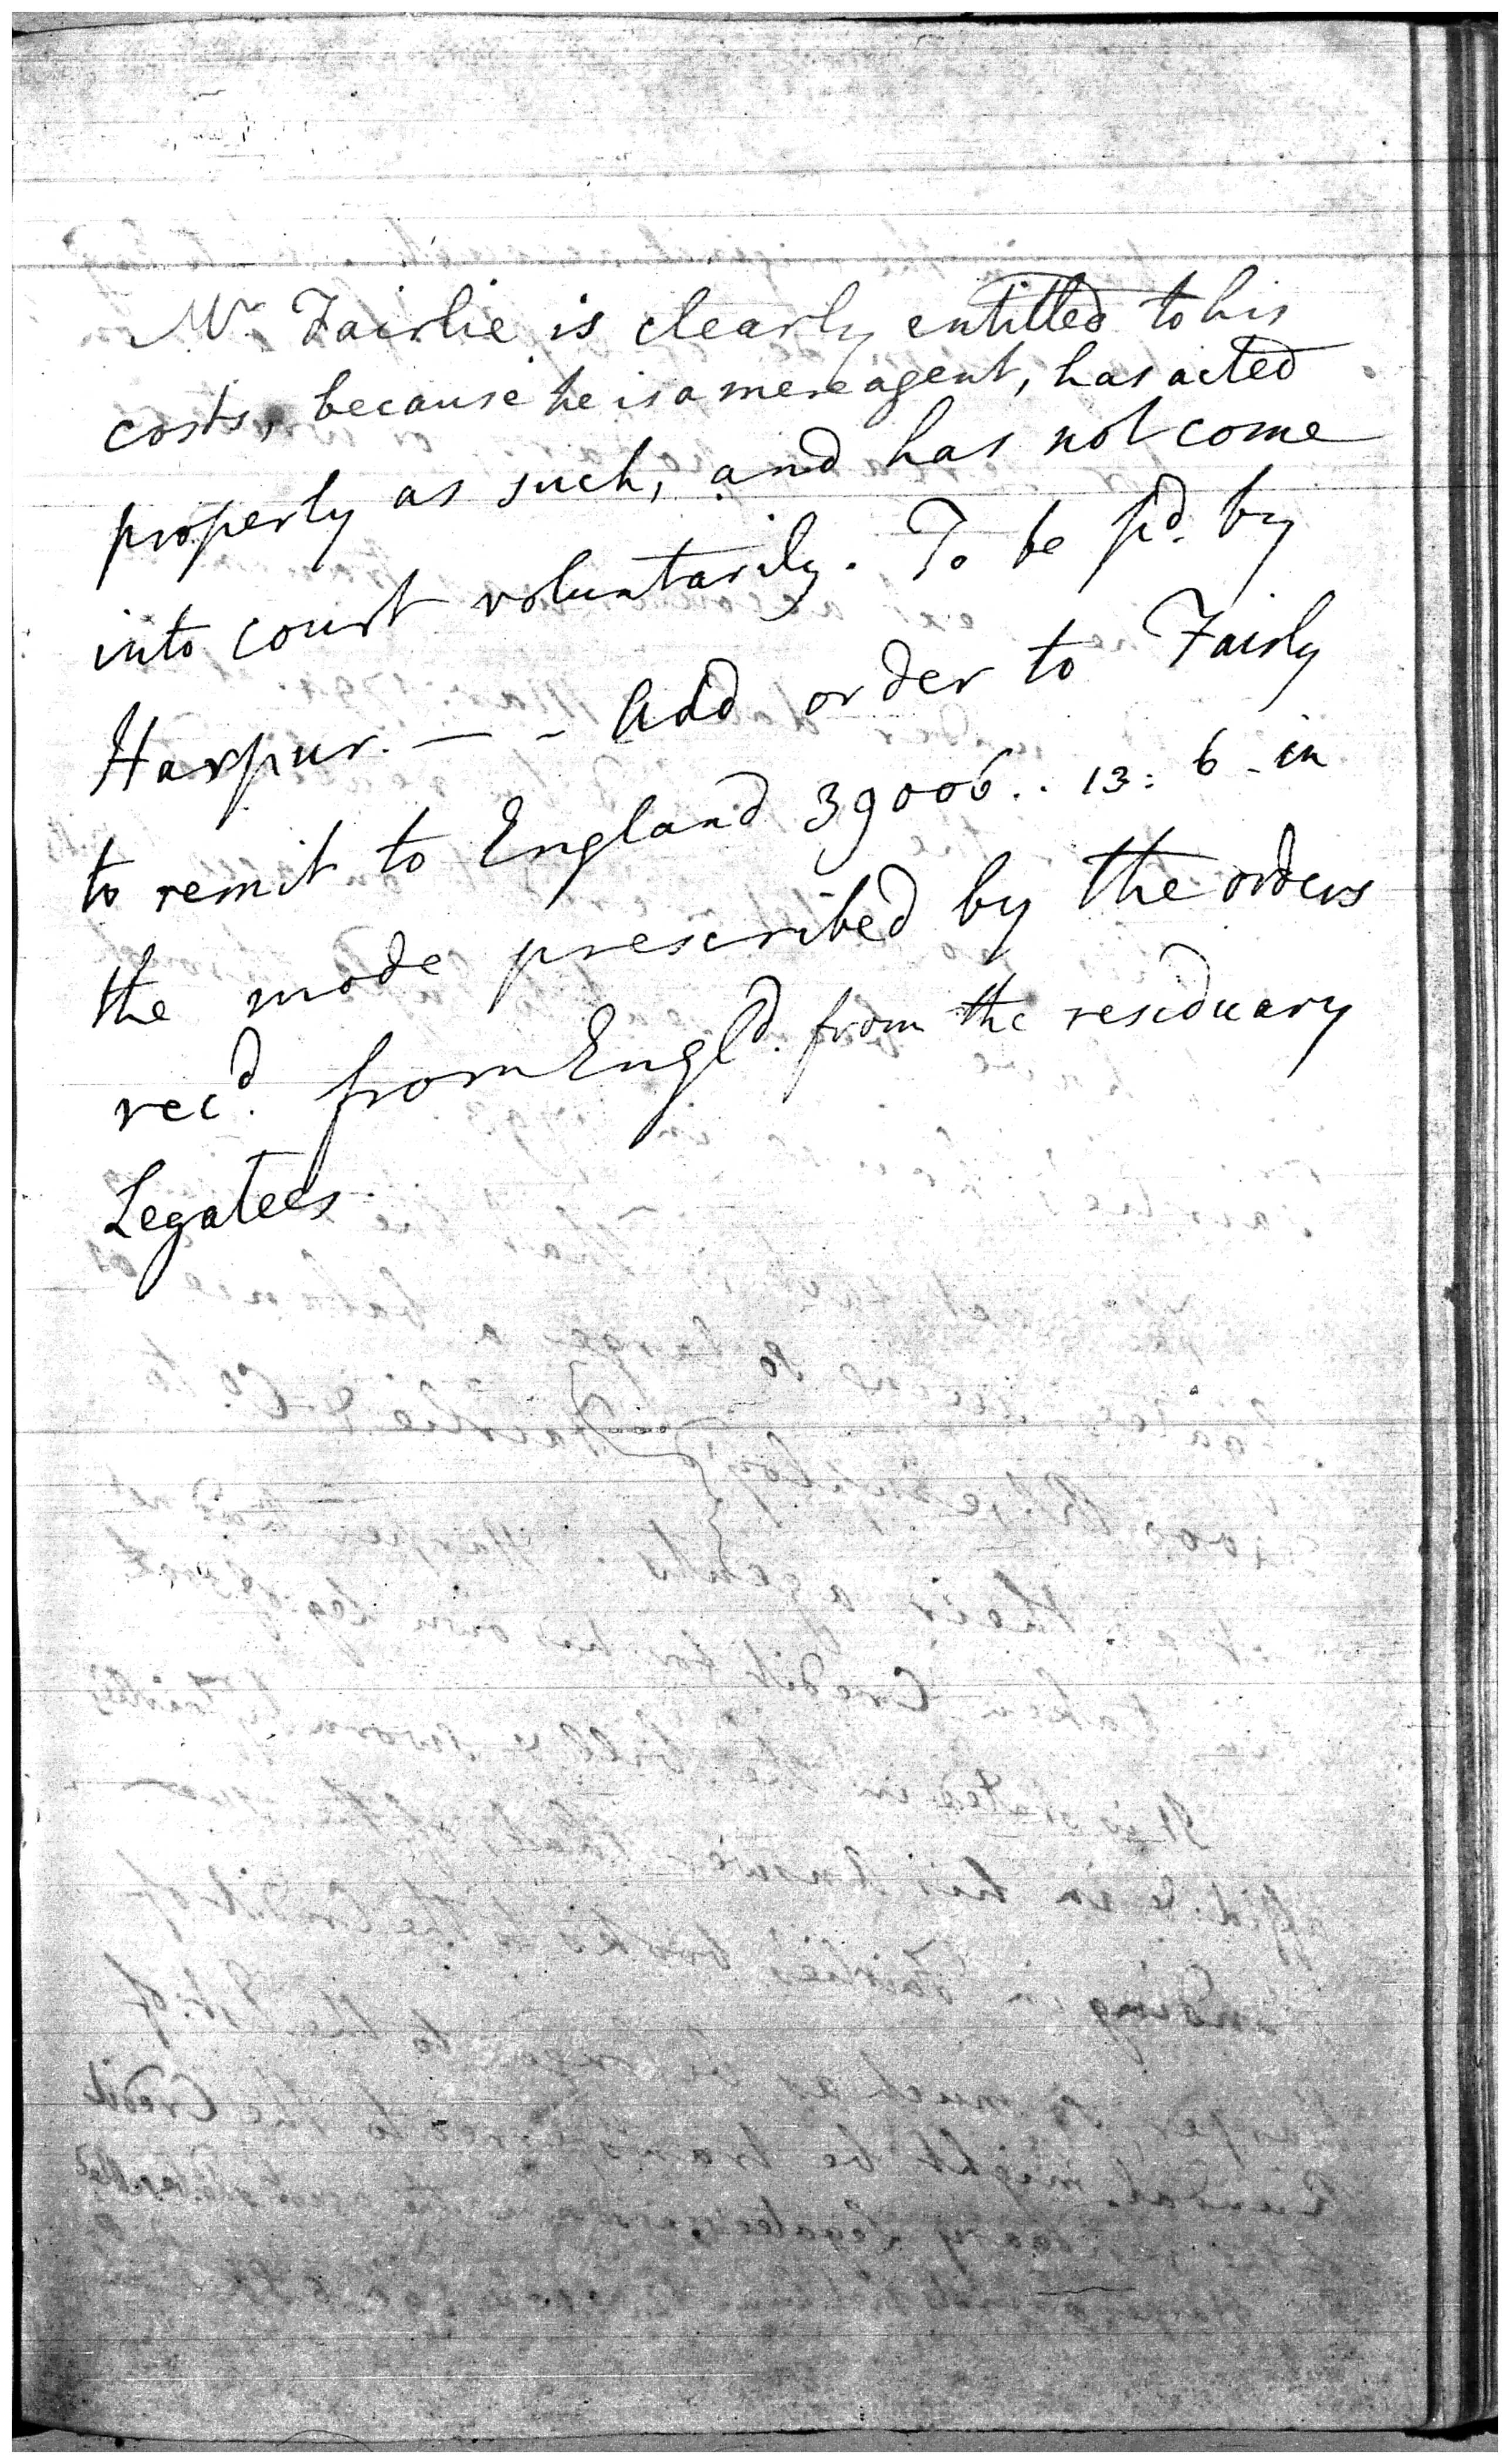 Mr. Fairlie is clearly entitled to his
costs, because he is a mere agent, has acted
properly as such, and has not come
into court voluntarily. To be pd. by
Harpur. — - Add order to Fairly
to remit to England 39006.. 13: 6 - in
the mode prescribed by the orders
recd. from Engld. from the residuary
Legatees.